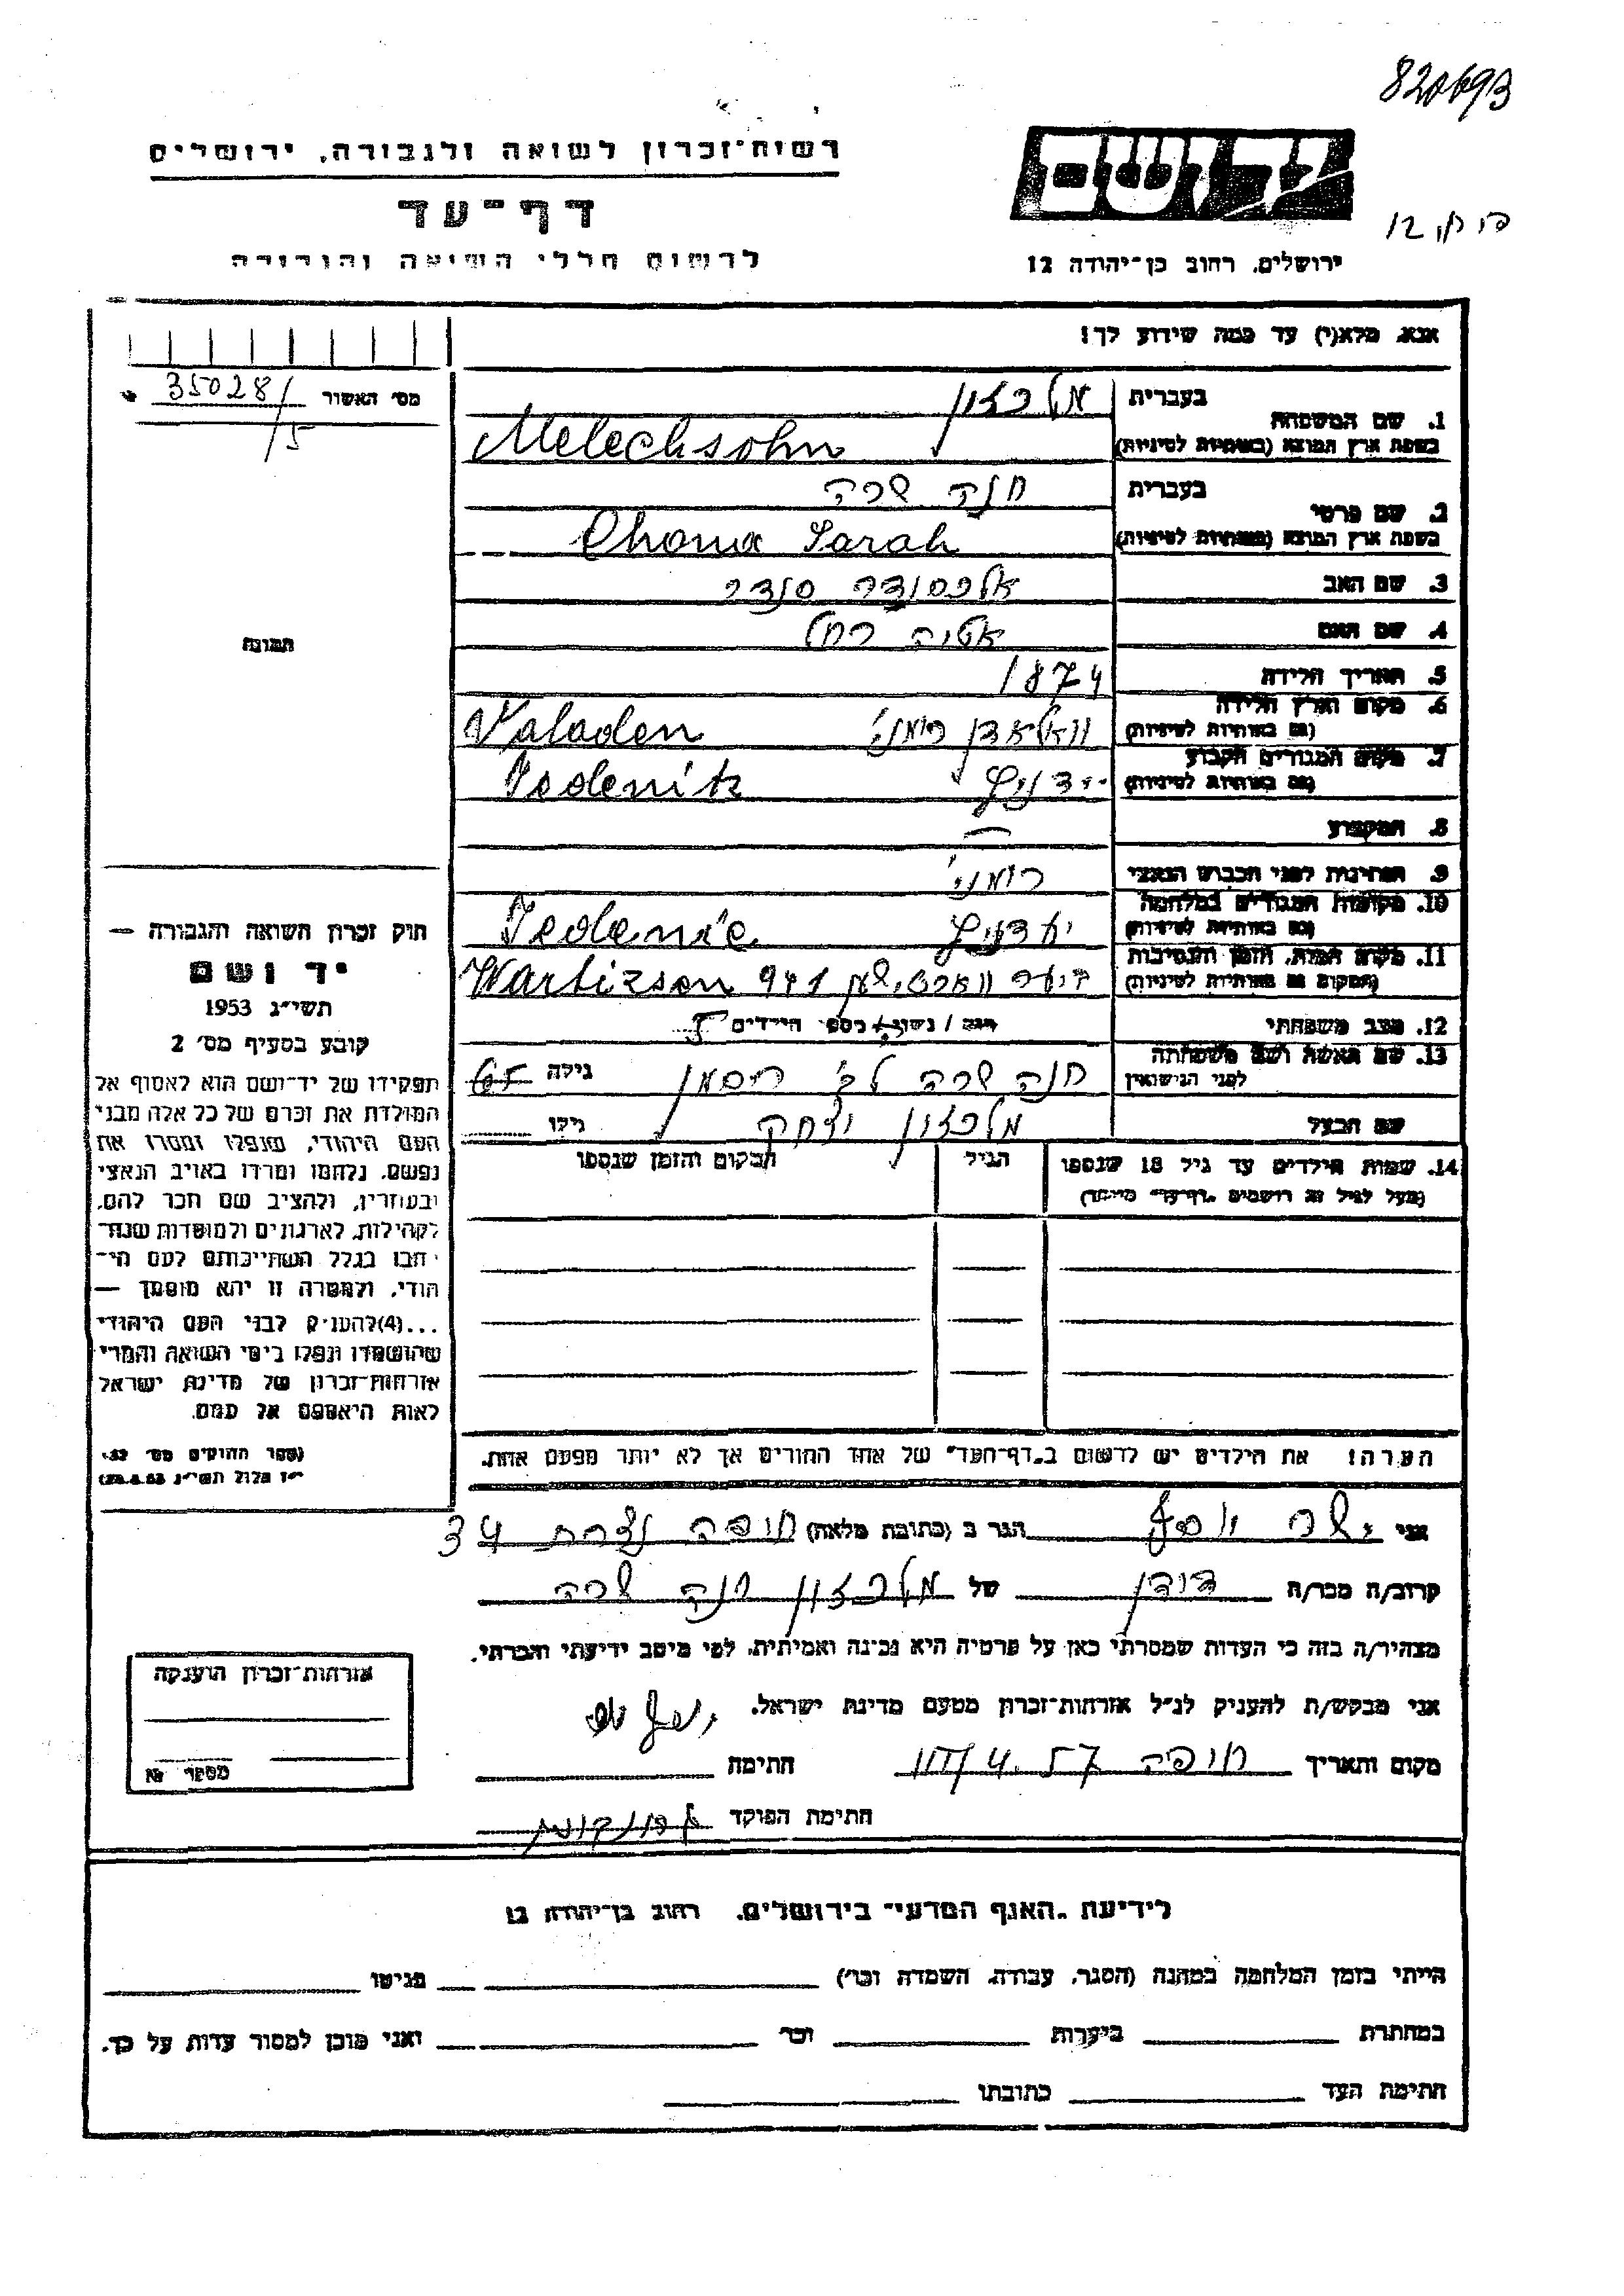 820693
רשות־זכרון לשואה ולגבורה, ירושלים
ידושם
דף־עד
לרשום חללי השואה והגבורה
ירושלים, רחוב בן־יהודה 12
אנא, מלא(י) עד כמה שידוע לך!
מס' האשור 35028/
5
1. שם המשפחה
בעברית מלכזון
בשפת ארץ המוצא (באותיות לטיניות) Melechsohn
2. שם פרטי
בעברית חנה שרה
בשפת ארץ המוצא (באותיות לטיניות) Chana Sarah
3. שם האב אלכסנדר סנדר
4. שם האם אטיה רחל
תמונה
5. תאריך הלידה 1874
6. מקום וארץ הלידה
(גם באותיות לטיניות) וואלאדן רומני' Valaden
7. מקום המגורים הקבוע
(גם באותיות לטיניות) ידניץ Iedenitz
8. המקצוע —
9. הנתינות לפני הכבוש הנאצי רומני'
10. מקומות המגורים במלחמה
(גם באותיות לטיניות) יעדניץ
11. מקום המות, הזמן והנסיבות
(המקום גם באותיות לטיניות) 941
12. מצב משפחתי רווק / נשוי / מספר הילדים 5
13. שם האשה ושם משפחתה
לפני הנישואין חנה שרה גילה 67
שם הבעל מלכזון יצחק גילו
14. שמות הילדים עד גיל 18 שנספו
(מעל לגיל זה רושמים „דף־עד" מיוחד)
הגיל
המקום והזמן שנספו
הערה! את הילדים יש לרשום ב„דף־העד" של אחד ההורים אך לא יותר מפעם אחת.
חוק זכרון השואה והגבורה —
יד ושם
תשי"ג 1953
קובע בסעיף מס' 2
תפקידו של יד־ושם הוא לאסוף אל
המולדת את זכרם של כל אלה מבני
העם היהודי, שנפלו ומסרו את
נפשם, נלחמו ומרדו באויב הנאצי
ובעוזריו, ולהציב שם וזכר להם,
לקהילות, לארגונים ולמוסדות שנח־
רבו בגלל השתייכותם לעם הי־
הודי, ולמטרה זו יהא מוסמך —
...(4) להעניק לבני העם היהודי
שהושמדו ונפלו בימי השואה והמרי
אזרחות־זכרון של מדינת ישראל
לאות היאספם אל עמם.
(ספר החוקים מס' 132,
י"ז אלול תשי"ג 28.8.53)
אני ישר יוסף הגר ב (כתובת מלאה) חיפה 34
קרוב/ה מכר/ה דודן של מלכזון חנה שרה
מצהיר/ה בזה כי העדות שמסרתי כאן על פרטיה היא נכונה ואמיתית, לפי מיטב ידיעתי והכרתי.
אני מבקש/ת להעניק לנ"ל אזרחות־זכרון מטעם מדינת ישראל.
מקום ותאריך חיפה חתימה
חתימת הפוקד
אזרחות־זכרון הוענקה
מספר №
לידיעת „האגף המדעי" בירושלים, רחוב בן־יהודה 12
הייתי בזמן המלחמה במחנה (הסגר, עבודה, השמדה וכו') בגיטו
במחתרת ביערות וכו' ואני מוכן למסור עדות על כך.
חתימת העד כתובתו